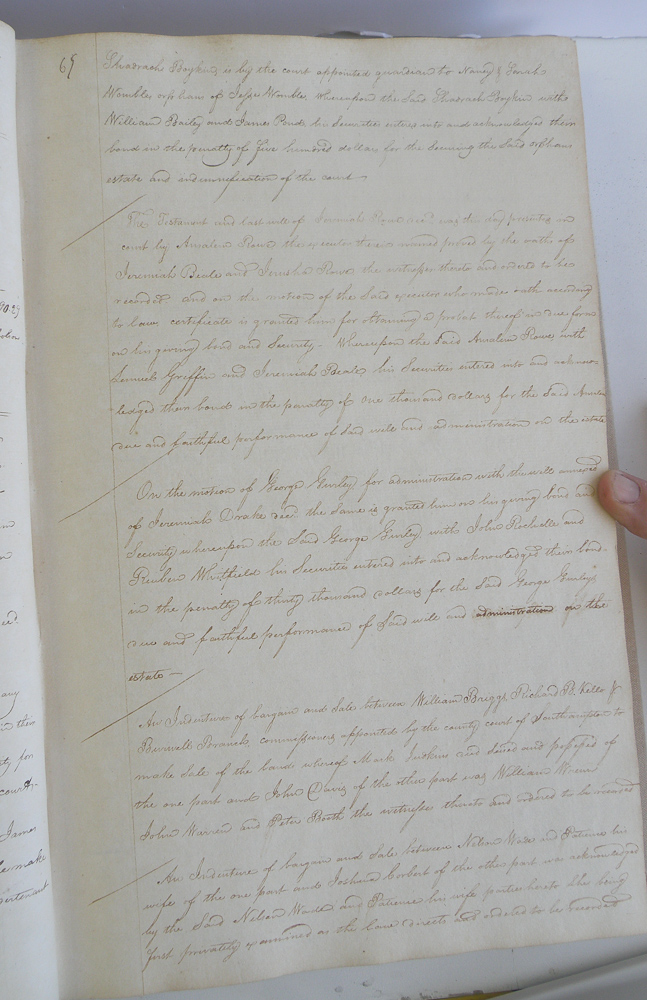 69
Shadrach Boykin is by the court appointed guardian to Nancy & Sarah
Wombles orphans of Jesse Womble, whereupon the said Shadrach Boykin with
William Bailey and James Pond his Securities entered into and acknowledged their
bond in the penalty of five hundred dollars for the securing the said orphans
estate and indemnification of the court
The Testament and last will of Jeremiah dec'd was this day presented in
court by the executor therein named proved by the oaths of
Jeremiah Beale and Jerusha the witnesses thereto and ordered to be
recorded and on the motion of the said executor who made oath according
to law certificate is granted him for obtaining a probat thereof in due form
on his giving bond and Security. Whereupon the said with
Samuel Griffin and Jeremiah Beale his Securities entered into and acknow-
ledged their bond in the penalty of one thousand dollars for the said
due and faithful performance of said will and administration on the estate
On the motion of George Gurley for administration with the will annexed
of Jeremiah Drake dec'd the same is granted him on his giving bond and
Security whereupon the said George Gurley with John Rochelle and
Reuben Whitfield his Securities entered into and acknowledged their bond
in the penalty of thirty thousand dollars for the said George Gurley's
due and faithful performance of said will and administration on the
estate
An Indenture of bargain and sale between William Briggs Richard B. Kello &
Burwell Branch, commissioners appointed by the county court of Southampton to
make sale of the land whereof Mark Judkins died seized and possessed of
the one part and John Davis of the other part was William
John Warren and Peter Booth the witnesses thereto and ordered to be recorded
An Indenture of bargain and sale between Nelson Wade and Patience his
wife of the one part and Joshua Corbert of the other part was acknowledged
by the said Nelson Wade and Patience his wife parties hereto she being
first privately examined as the law directs and ordered to be recorded
any
court
James
make